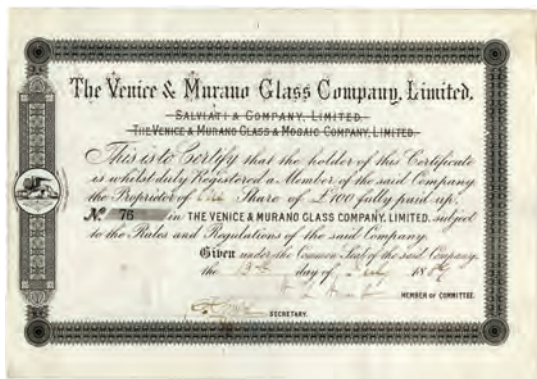 The Venice & Murano Glass Company, Limited.
SALVIATI & COMPANY, LIMITED.
THE VENICE & MURANO GLASS & MOSAIC COMPANY, LIMITED.
This is to Certify that the holder of this Certificate
is whilst duly Registered a Member of the said Company
the Proprietor of One Share of £100 fully paid up.
No. 76 in THE VENICE & MURANO GLASS COMPANY, LIMITED. subject
to the Rules and Regulations of the said Company.
Given under the Common Seal of the said Company,
the 13th day of July 18
MEMBER OF COMMITTEE.
SECRETARY.